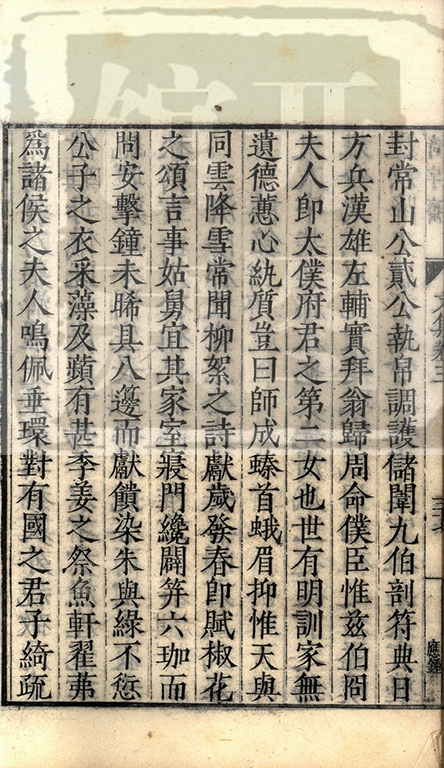 封常山公貳公執帛調護儲闈九伯剖符典日
方兵漢雄左輔實拜翁歸周命僕臣惟兹伯冏
夫人卽太僕府君之第二女也世有明訓家無
遺德蕙心紈質豈曰師成螓首蛾眉抑惟天與
同雲降雪常聞柳絮之詩獻歲發春卽賦椒花
之頌言事姑舅宜其家室寢門纔闢笄六珈而
問安擊鐘未晞具八籩而獻饋染朱與綠不愆
公子之衣采藻及蘋有甚季姜之祭魚軒翟茀
爲諸侯之夫人鳴佩垂環對有國之君子綺疏
應鍾